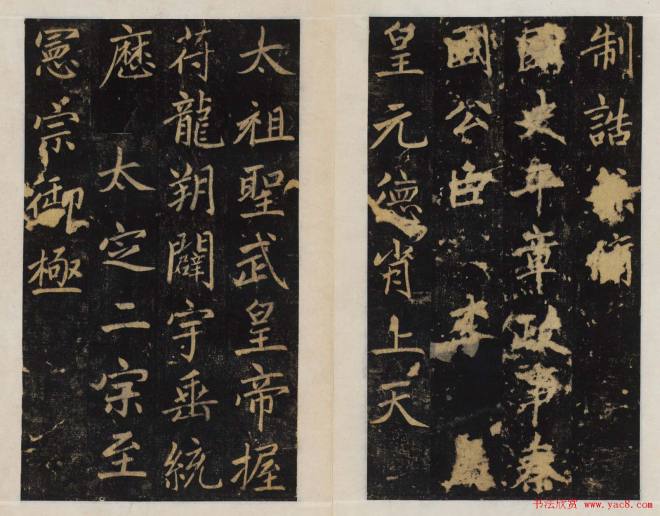 制誥脩
國史平章政事秦
國公臣 李
皇元德肖上天
太祖聖武皇帝握
苻龍朔闢宇垂統
歷 太定二宗至
憲宗御極
书法欣赏 www.yac8.com